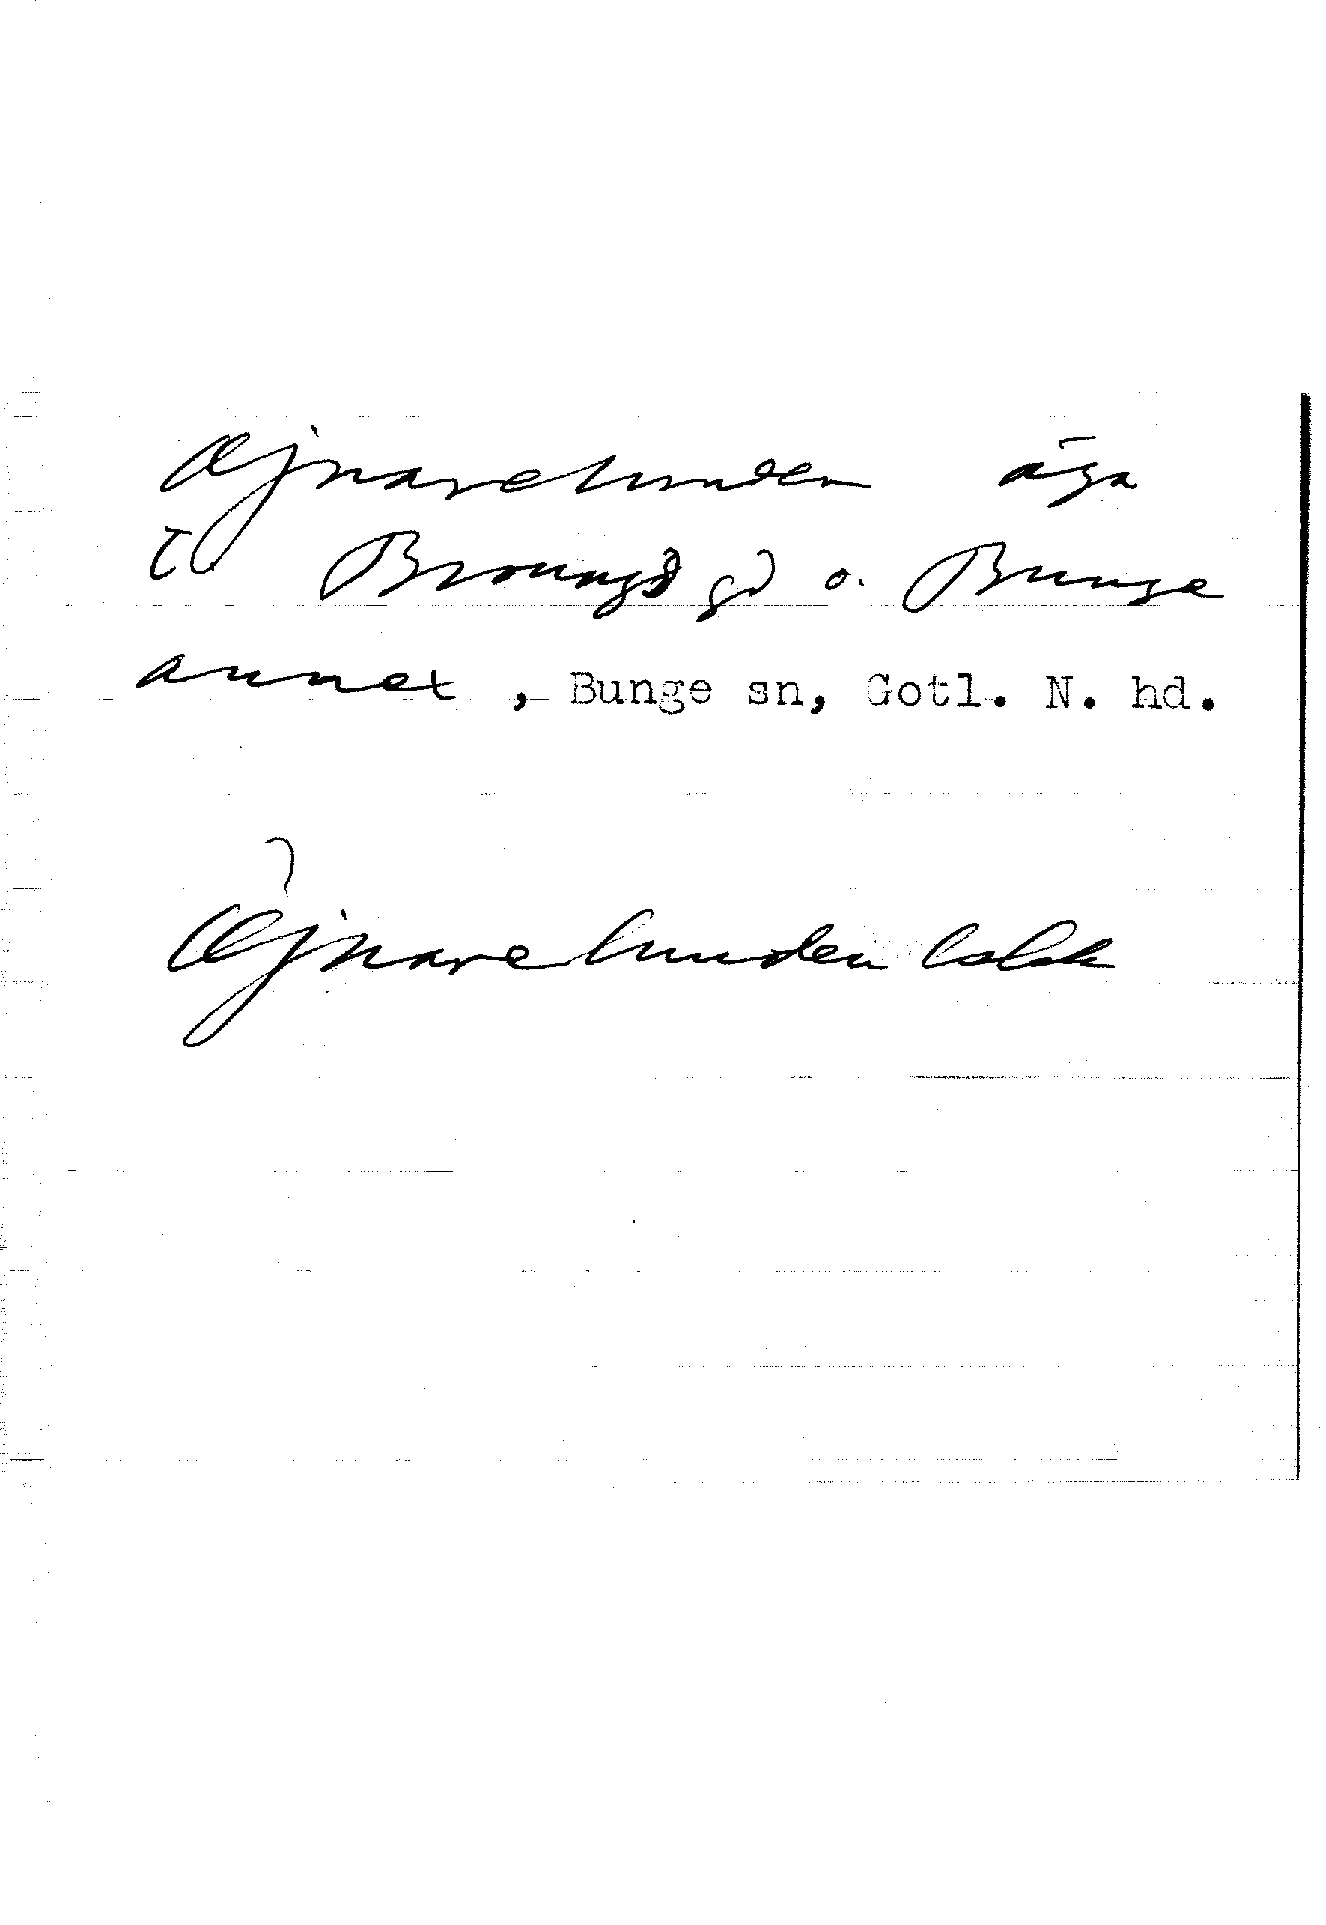 Ojnarelunden äga
t Broungs gd o. Bunge
annex, Bunge sn, Gotl. N. hd.
Ojnarelunden